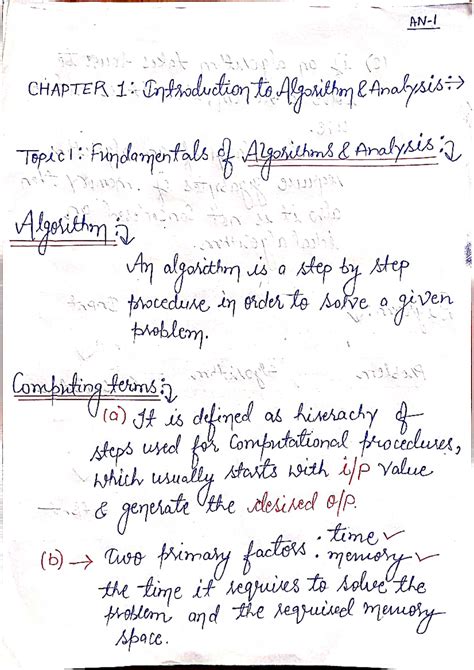 AN-1
CHAPTER 1: Introduction to Algorithm & Analysis:→
Topic 1: Fundamentals of Algorithms & Analysis:
Algorithm:
An algorithm is a step by step
procedure in order to solve a given
problem.
Computing terms:
(a) It is defined as hierarchy of
steps used for Computational procedures,
which usually starts with i/p value
& generate the desired o/p.
(b) → Two primary factors: time ✓
memory ✓
the time it requires to solve the
problem and the required memory
space.